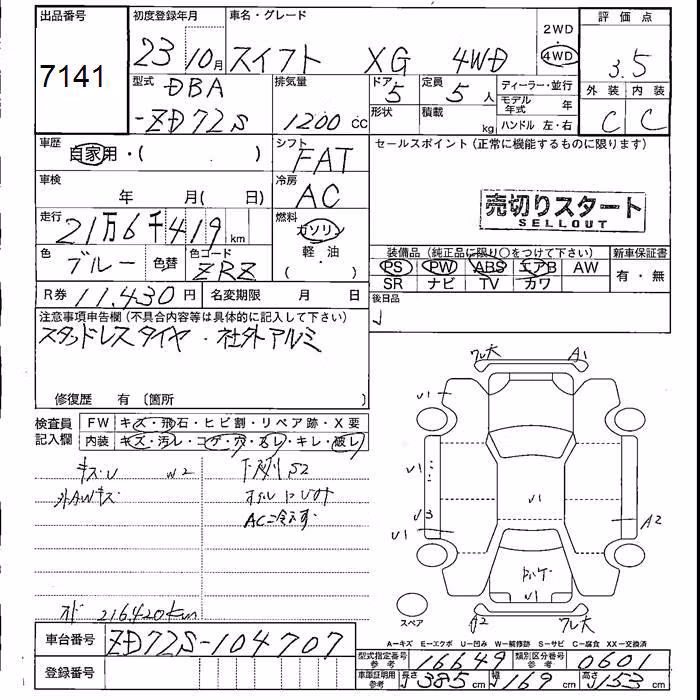 出品番号
7141
初度登録年月
23 10月
車名・グレード
スイフト XG 4WD
2WD
4WD
評価点
3.5
外装 内装
C C
型式
DBA
-ZD72S
排気量
1200 cc
ドア
5
形状
定員
5 人
積載
kg
ディーラー・並行
モデル年式 年
ハンドル 左・右
車歴
自家用・( )
シフト
FAT
セールスポイント (正常に機能するものに限ります)
売切りスタート
SELLOUT
車検
年 月( 日)
冷房
AC
走行
21万6千419km
燃料
ガソリン
軽・油
( )
色
ブルー
色替
色コード
ZRZ
装備品 (純正品に限り○をつけて下さい)
PS PW ABS エアB AW
SR ナビ TV カワ
新車保証書
有・無
R券 11,430円
名変期限 月 日
後日品
注意事項申告欄 (不具合内容等は具体的に記入して下さい)
スタッドレスタイヤ・社外アルミ
修復歴 有 〔箇所
検査員記入欄
FW キズ・飛石・ヒビ割・リペア跡・X要
内装 キズ・汚レ・コゲ・穴・スレ・キレ・破レ
キズ・U W2
外AWキズ
下廻りS2
AC冷えず
216420km
ワレ大 A1
U1
U1
U3
U1
U1
A2
A2 ワレ大
スペア
A=キズ E=エクボ U=凹み W=補修跡 S=サビ C=腐食 XX=交換済
車台番号 ZD72S-104707
登録番号
型式指定番号参考 16649
類別区分番号参考 0601
車庫証明用参考 長さ 385cm 幅 169cm 高さ 153cm